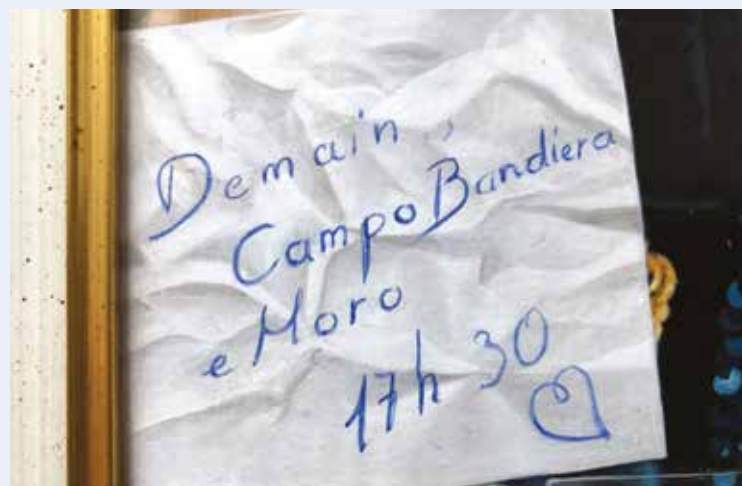 Demain,
Campo Bandiera
e Moro
17h 30